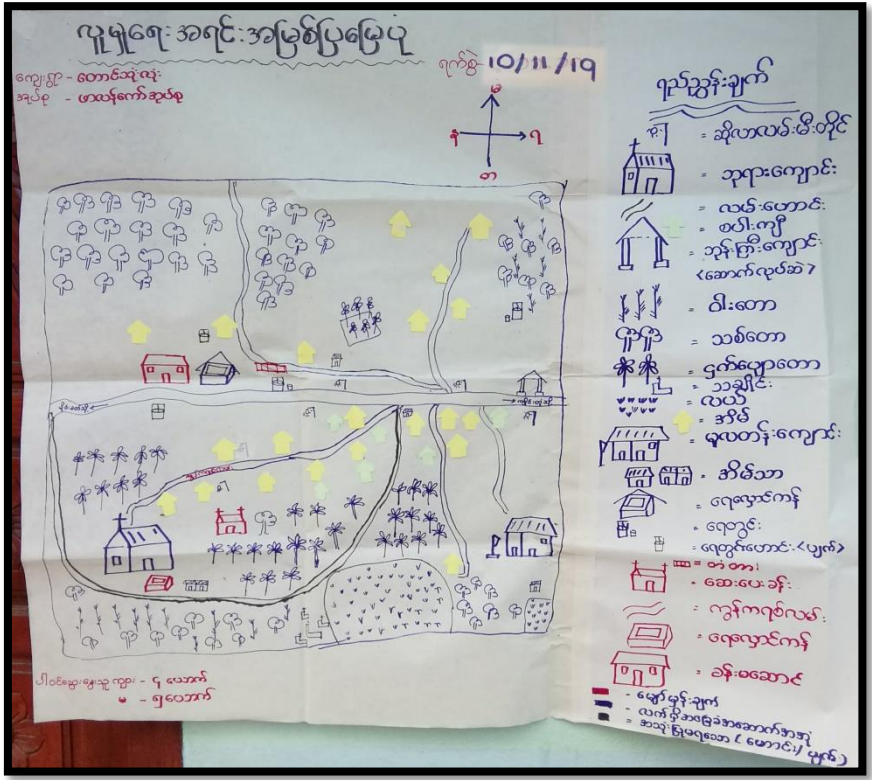 လူမှုရေး အရင်းအမြစ်ပြမြေပုံ
ရက်စွဲ - 10/11/19
ကျေးရွာ - တောင်သုံးလုံး
အုပ်စု - ဖာလန်ကော်အုပ်စု
မ
န
ရ
တ
ရည်ညွှန်းချက်
= ဆိုလာလမ်းမီးတိုင်
= ဘုရားကျောင်း
= လမ်းဟောင်း
= စပါးကျီ
= ဘုန်းကြီးကျောင်း
<ဆောက်လုပ်ဆဲ>
= ဝါးတော
= သစ်တော
= ငှက်ပျောတော
= သချိုင်း
= လယ်
= အိမ်
= မူလတန်းကျောင်း
= အိမ်သာ
= ရေလှောင်ကန်
= ရေတွင်း
= ရေတွင်းဟောင်း <ပျက်>
= တံတား
= ဆေးပေးခန်း
= ကွန်ကရစ်လမ်း
= ရေလှောင်ကန်
= ခန်းမဆောင်
- မျှော်မှန်းချက်
- လက်ရှိအခြေခံအဆောက်အအုံ
- အသုံးပြုမရသော (ဟောင်း/ပျက်)
ပါဝင်ဆွေးနွေးသူ ကျား - ၄ ယောက်
မ - ၅ ယောက်